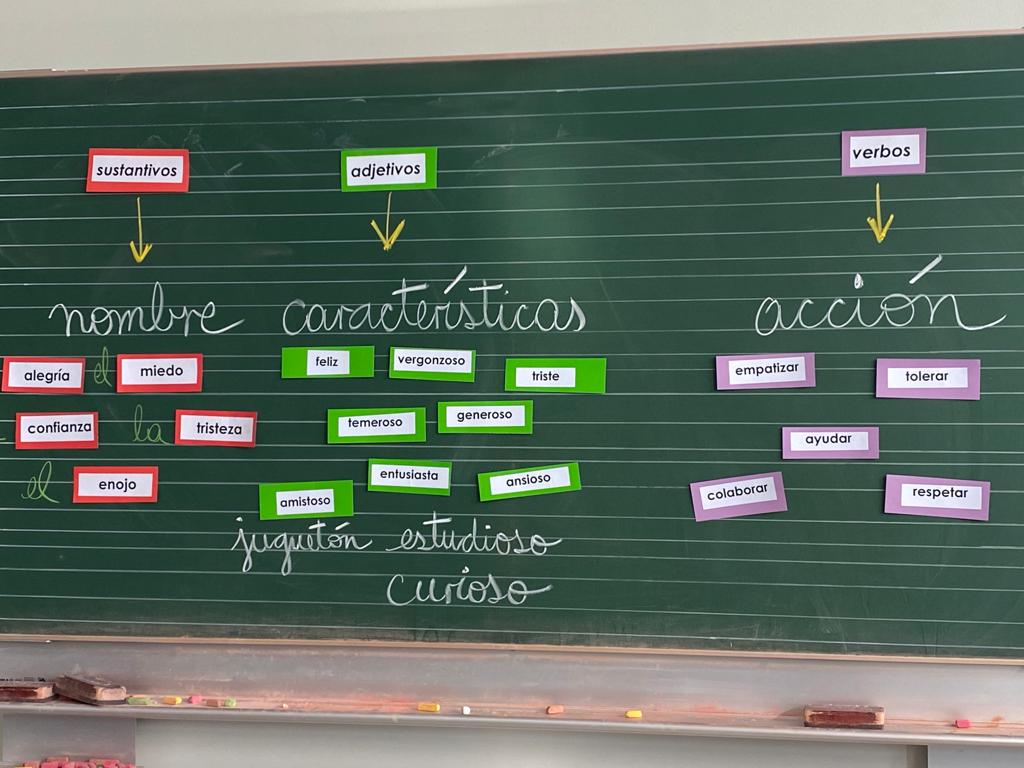 sustantivos adjetivos verbos
nombre características acción
alegría el miedo feliz vergonzoso triste empatizar tolerar
confianza la tristeza temeroso generoso ayudar
el enojo amistoso entusiasta ansioso colaborar respetar
juguetón estudioso
curioso